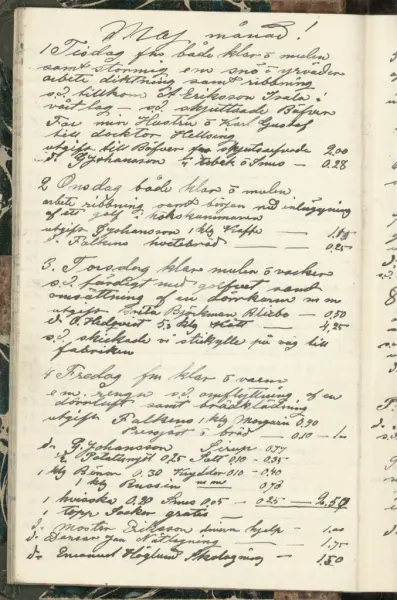 Maj månad!
1 Tisdag fm både klar o mulen
samt stormig em snö o yrväder
arbete diktning samt ribbning
s.d. tillkom Ef Eriksson Isala i
vårt lag — s.d. skjuttsade Böfvern
Far min Hustru o Karl Gustaf
till docktor Hellsing
utgifte till Böfver för skjutsafvede 2,00
d. P Johansson ½ tobak o Snus — 0,28
2 Onsdag både klar o mulen
arbete ribbning samt början med inläggning
af ett golf i kökskammaren
utgifte P Johansson 1 kg Kaffe —
d. Falkens hvetebröd — 0,25
3. Torsdag klar mulen o vacker
s.d. färdigt med golfvet samt
omsättning af en dörrkarm m m
utgift Brita Björkman Blisbo — 0,50
d. O. Hedqvist kg Kött — 4,25
s.d. skickade vi på väg till
fabriken
4 Fredag fm klar o varm
em. regn s.d. omflyttning af en
samt brädklädning
utgifte Falkens 1 kg Margarin 0,90
o bröd — 0,10 — 1 —
d. P. Johansson Sirup 0,77
Potatismjöl 0,25 Salt 0,10 - 0,35
1 kg Bönor 0,30 Kryddor 0,10 - 0,40
1 kg Russin 0,78
1 hviska 0,20 Snus 0,05 — 0,25 — 2,50
1 topp Socker gratis
d. Moster Eriksson hjelp — 1,00
d. Dansar Jan Nottlagning — 1,75
d. Emanuel Höglund Skolagning — 1,50